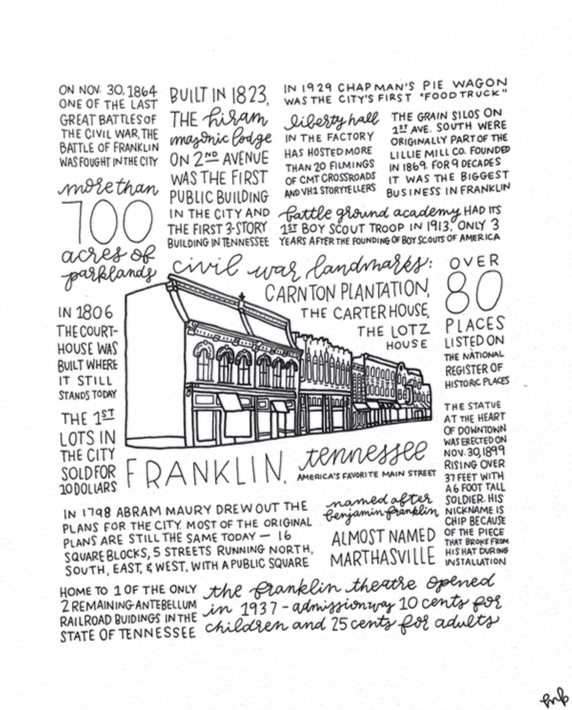 ON NOV. 30, 1864
ONE OF THE LAST
GREAT BATTLES OF
THE CIVIL WAR, THE
BATTLE OF FRANKLIN
WAS FOUGHT IN THE CITY
more than
700
acres of
parklands
BUILT IN 1823,
THE hiram
masonic lodge
ON 2ND AVENUE
WAS THE FIRST
PUBLIC BUILDING
IN THE CITY AND
THE FIRST 3-STORY
BUILDING IN TENNESSEE
IN 1929 CHAPMAN'S PIE WAGON
WAS THE CITY'S FIRST "FOOD TRUCK"
liberty hall
IN THE FACTORY
HAS HOSTED MORE
THAN 20 FILMINGS
OF CMT CROSSROADS
AND VH1 STORYTELLERS
THE GRAIN SILOS ON
1ST AVE. SOUTH WERE
ORIGINALLY PART OF THE
LILLIE MILL CO. FOUNDED
IN 1869. FOR 9 DECADES
IT WAS THE BIGGEST
BUSINESS IN FRANKLIN
battle ground academy HAD ITS
1ST BOY SCOUT TROOP IN 1913, ONLY 3
YEARS AFTER THE FOUNDING OF BOY SCOUTS OF AMERICA
civil war landmarks:
CARNTON PLANTATION,
THE CARTER HOUSE,
THE LOTZ
HOUSE
OVER
80
PLACES
LISTED ON
THE NATIONAL
REGISTER OF
HISTORIC PLACES
IN 1806
THE COURT-
HOUSE WAS
BUILT WHERE
IT STILL
STANDS TODAY
THE 1ST
LOTS IN
THE CITY
SOLD FOR
10 DOLLARS
FRANKLIN, tennessee
AMERICA'S FAVORITE MAIN STREET
THE STATUE
AT THE HEART
OF DOWNTOWN
WAS ERECTED ON
NOV. 30, 1899
RISING OVER
37 FEET WITH
A 6 FOOT TALL
SOLDIER. HIS
NICKNAME IS
CHIP BECAUSE
OF THE PIECE
THAT BROKE FROM
HIS HAT DURING
INSTALLATION
IN 1798 ABRAM MAURY DREW OUT THE
PLANS FOR THE CITY. MOST OF THE ORIGINAL
PLANS ARE STILL THE SAME TODAY — 16
SQUARE BLOCKS, 5 STREETS RUNNING NORTH,
SOUTH, EAST, & WEST, WITH A PUBLIC SQUARE
named after
benjamin franklin
ALMOST NAMED
MARTHASVILLE
HOME TO 1 OF THE ONLY
2 REMAINING ANTEBELLUM
RAILROAD BUIDINGS IN THE
STATE OF TENNESSEE
the franklin theatre opened
in 1937 - admission way 10 cents for
children and 25 cents for adults